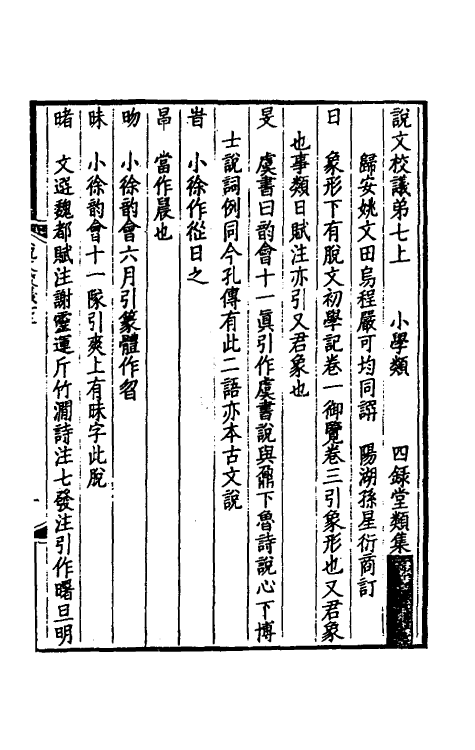 說文校議弟七上　小學類　四錄堂類集
歸安姚文田烏程嚴可均同譔　陽湖孫星衍商訂
日　象形下有脫文初學記卷一御覽卷三引象形也又君象
也事類日賦注亦引又君象也
旻　虞書曰韵會十一眞引作虞書說與鼏下魯詩說心下博
士說詞例同今孔傳有此二語亦本古文說
旹　小徐作從日之
昌　當作晨也
昒　小徐韵會六月引篆體作曶
昧　小徐韵會十一隊引爽上有昧字此脫
睹　文選魏都賦注謝靈運斤竹澗詩注七發注引作曙旦明